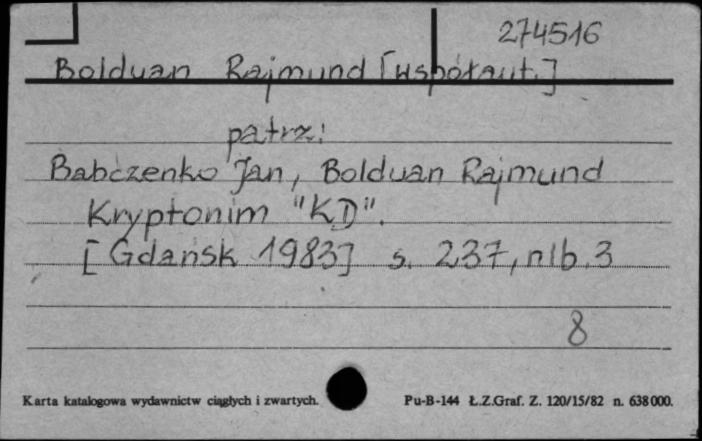 274516
Bolduan Rajmund [współaut.]
patrz:
Babczenko Jan, Bolduan Rajmund
Kryptonim "KD".
[Gdańsk 1983] s. 237, nlb. 3
8
Karta katalogowa wydawnictw ciągłych i zwartych. Pu-B-144 Ł.Z.Graf. Z. 120/15/82 n. 638000.